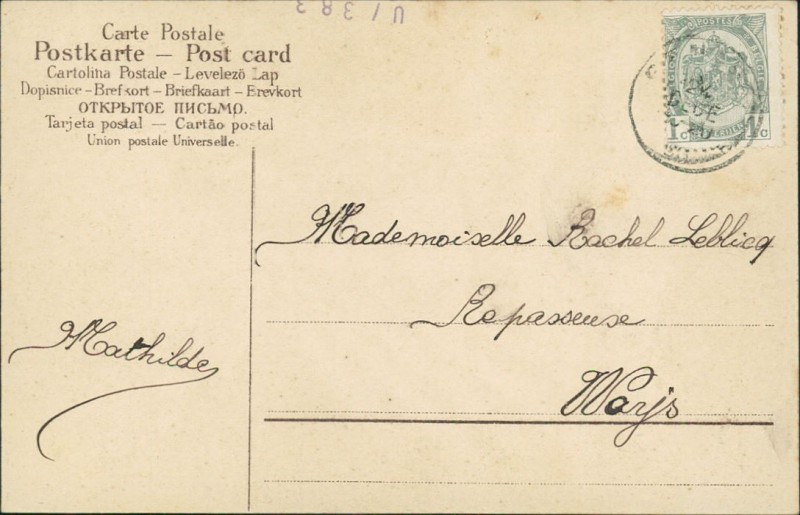 U/383
Carte Postale
Postkarte — Post card
Cartolina Postale – Levelező Lap
Dopisnice – Brefkort – Briefkaart – Brevkort
ОТКРЫТОЕ ПИСЬМО.
Tarjeta postal — Cartão postal
Union postale Universelle.
POSTES
1 c
1 c
Mademoiselle Rachel Leblicq
Repasseuse
Warjs
Mathilde